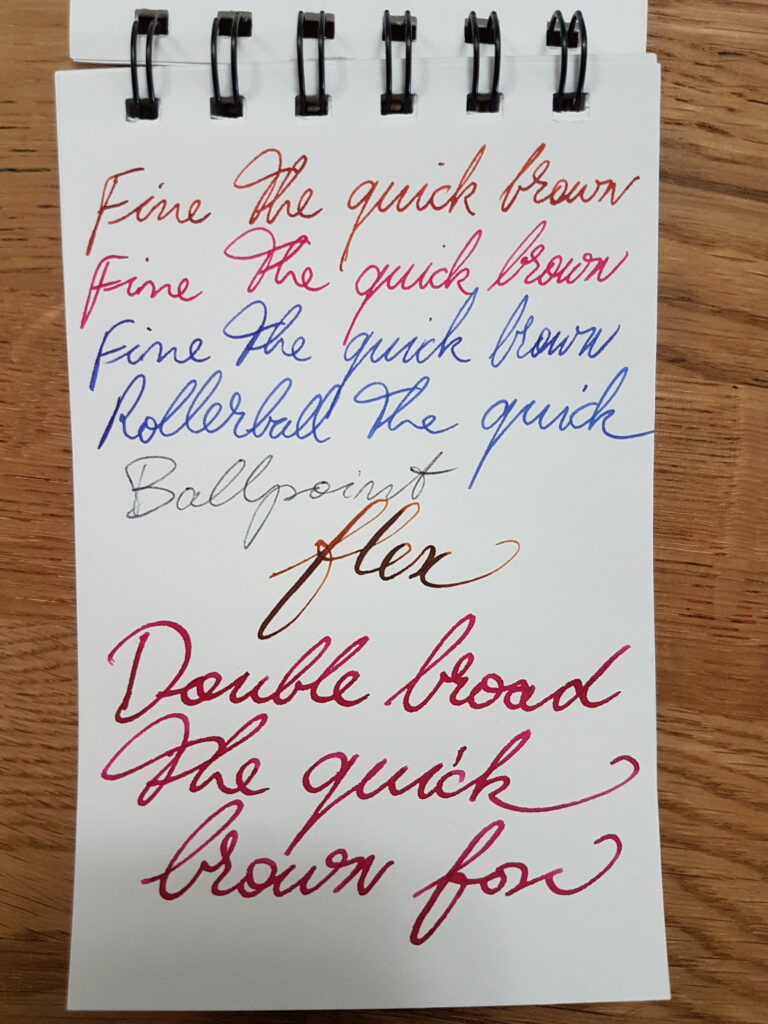 Fine The quick brown
Fine The quick brown
Fine The quick brown
Rollerball The quick
Ballpoint
flex
Double broad
The quick
brown fox